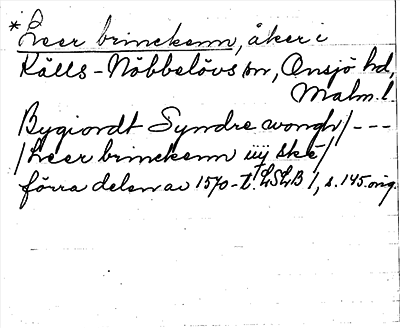 *Leer brinckenn, åker i
Källs-Nöbbelövs sn, Onsjö hd,
Malm. l.
Bygiordt Syndre wongh/---
/Leer brinckenn iiij ske/
förra delen av 1570-t. LSLB 1, s. 145 orig.